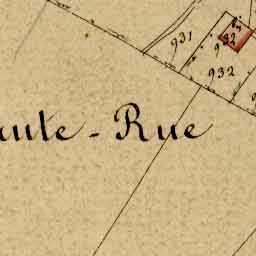 931
932
932
aute - Rue